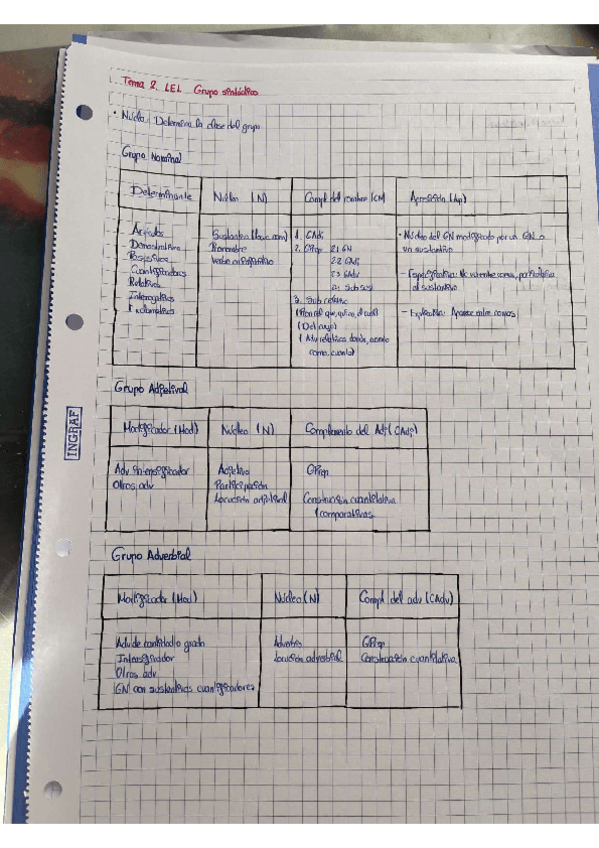 Tema 2. LEL Grupo sintáctico
• Núcleo: Determina la clase del grupo
Grupo Nominal
Determinante
Núcleo (N)
Compl del nombre (CN)
Aposición (Ap)
Artículos
Demostrativos
Posesivos
Cuantificadores
Relativos
Interrogativos
Exclamativos
Sustantivo
Pronombre
Verbo en infinitivo
1. GAdj
2. GPrep 2.1 GN
2.2 GPrep
2.3 GAdv
2.4 Sub sus
3. Sub relativo
(Pron rel que, quien, el cual)
(Det cuyo)
(Adv relativos donde, cuando
como, cuanto)
• Núcleo del GN modificado por un GN o
un sustantivo
- Especificativa: No va entre comas,
al sustantivo
- Explicativa: Aparece entre comas
INGRAF
Grupo Adjetival
Modificador (Mod)
Núcleo (N)
Complemento del Adj (CAdj)
Adv intensificador
Otros adv
Adjetivo
Participio
Locución adjetival
GPrep
Construcción cuantitativa
(comparativas
Grupo Adverbial
Modificador (Mod)
Núcleo (N)
Compl del adv (CAdv)
Adv de cantidad o grado
Intensificador
Otros adv
GN con sustantivos cuantificadores
Adverbio
Locución adverbial
GPrep
Construcción cuantitativa